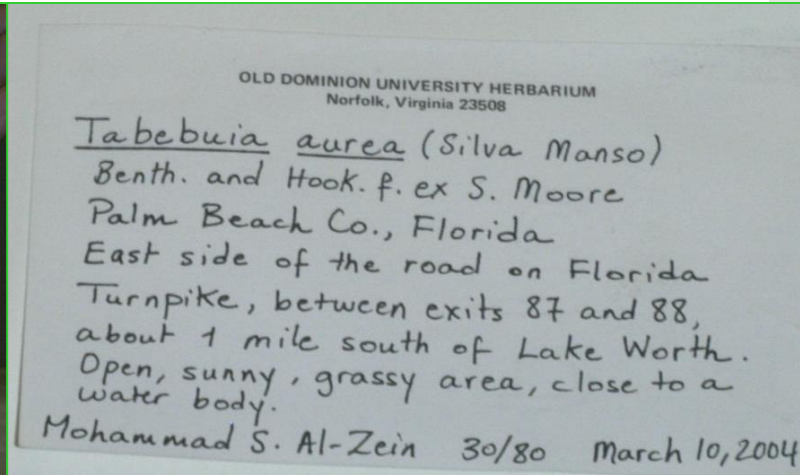 OLD DOMINION UNIVERSITY HERBARIUM
Norfolk, Virginia 23508
Tabebuia aurea (Silva Manso)
Benth. and Hook. f. ex S. Moore
Palm Beach Co., Florida
East side of the road on Florida
Turnpike, between exits 87 and 88,
about 1 mile south of Lake Worth.
Open, sunny, grassy area, close to a
water body.
Mohammad S. Al-Zein 30/80 March 10, 2004